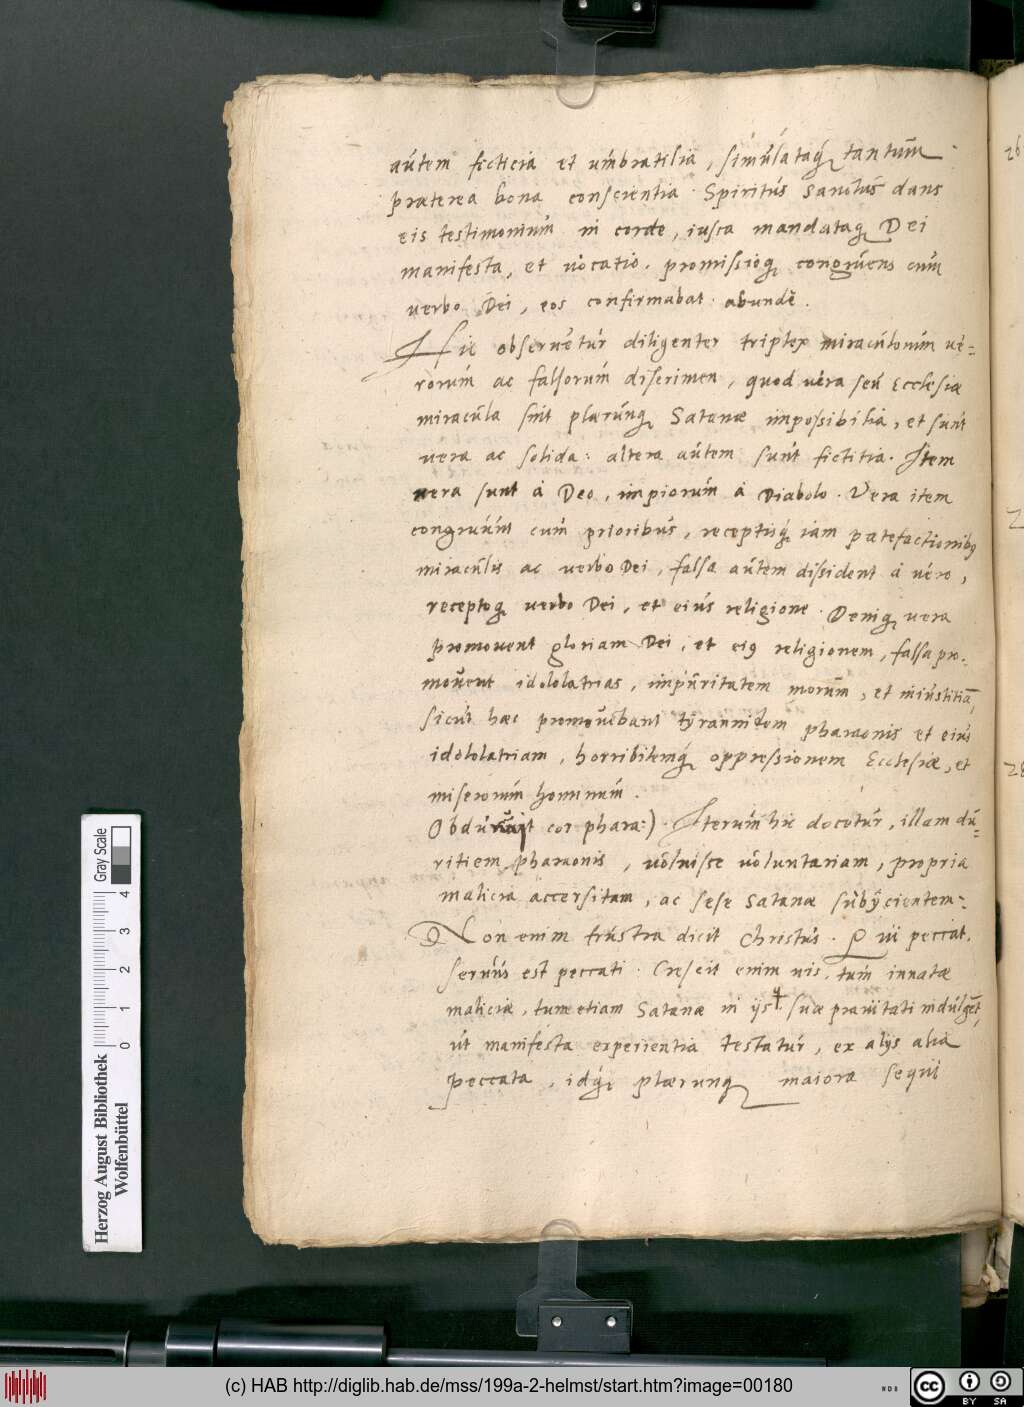 autem ficticia et umbratilia, simulataq; tantum.
praeterea bona conscientia. Spiritus Sanctus dans
eis testimonium in corde, iusca mandataq; Dei
manifesta, et vocatio, promissioq; congruens cum
verbo Dei, eos confirmabat abunde.
Hic observetur diligenter triplex miraculorum ve=
rorum ac falsorum discrimen, quod vera seu Ecclesiae
miracula sint plaerunq; Satanae impossibilia, et sunt
vera ac solida: altera autem sunt fictitia. Item
vera sunt à Deo, impiorum à Diabolo. Vera item
congruunt cum prioribus, receptisq; iam patefactionibus
miraculis ac verbo Dei, falsa autem dissident à vero,
receptoq; verbo Dei, et eius religione. Deniq; vera
promovent gloriam Dei, et ei9 religionem, falsa pro-
movent idololatrias, impuritatem morum, et iniustitiā,
sicut haec promovebant tyrannidem pharaonis et eius
idololatriam, horribilemq; oppressionem Ecclesiae, et
miserorum hominum.
Obduruit cor phara:). Iterum hic docetur, illam du=
ritiem pharaonis, voluisse voluntariam, propria
malicia accersitam, ac sese Satanae subijcientem.
Non enim frustra dicit Christus. Qui peccat,
servus est peccati. Crescit enim vis, tum innatae
maliciae, tum etiam Satanae in ijs q suae pravitati indulgēt,
ut manifesta experientia testatur, ex alijs alia
peccata, idq; plaerunq; maiora sequi
Gray Scale
4
3
2
1
0
Herzog August Bibliothek
Wolfenbüttel
(c) HAB http://diglib.hab.de/mss/199a-2-helmst/start.htm?image=00180
cc
BY SA